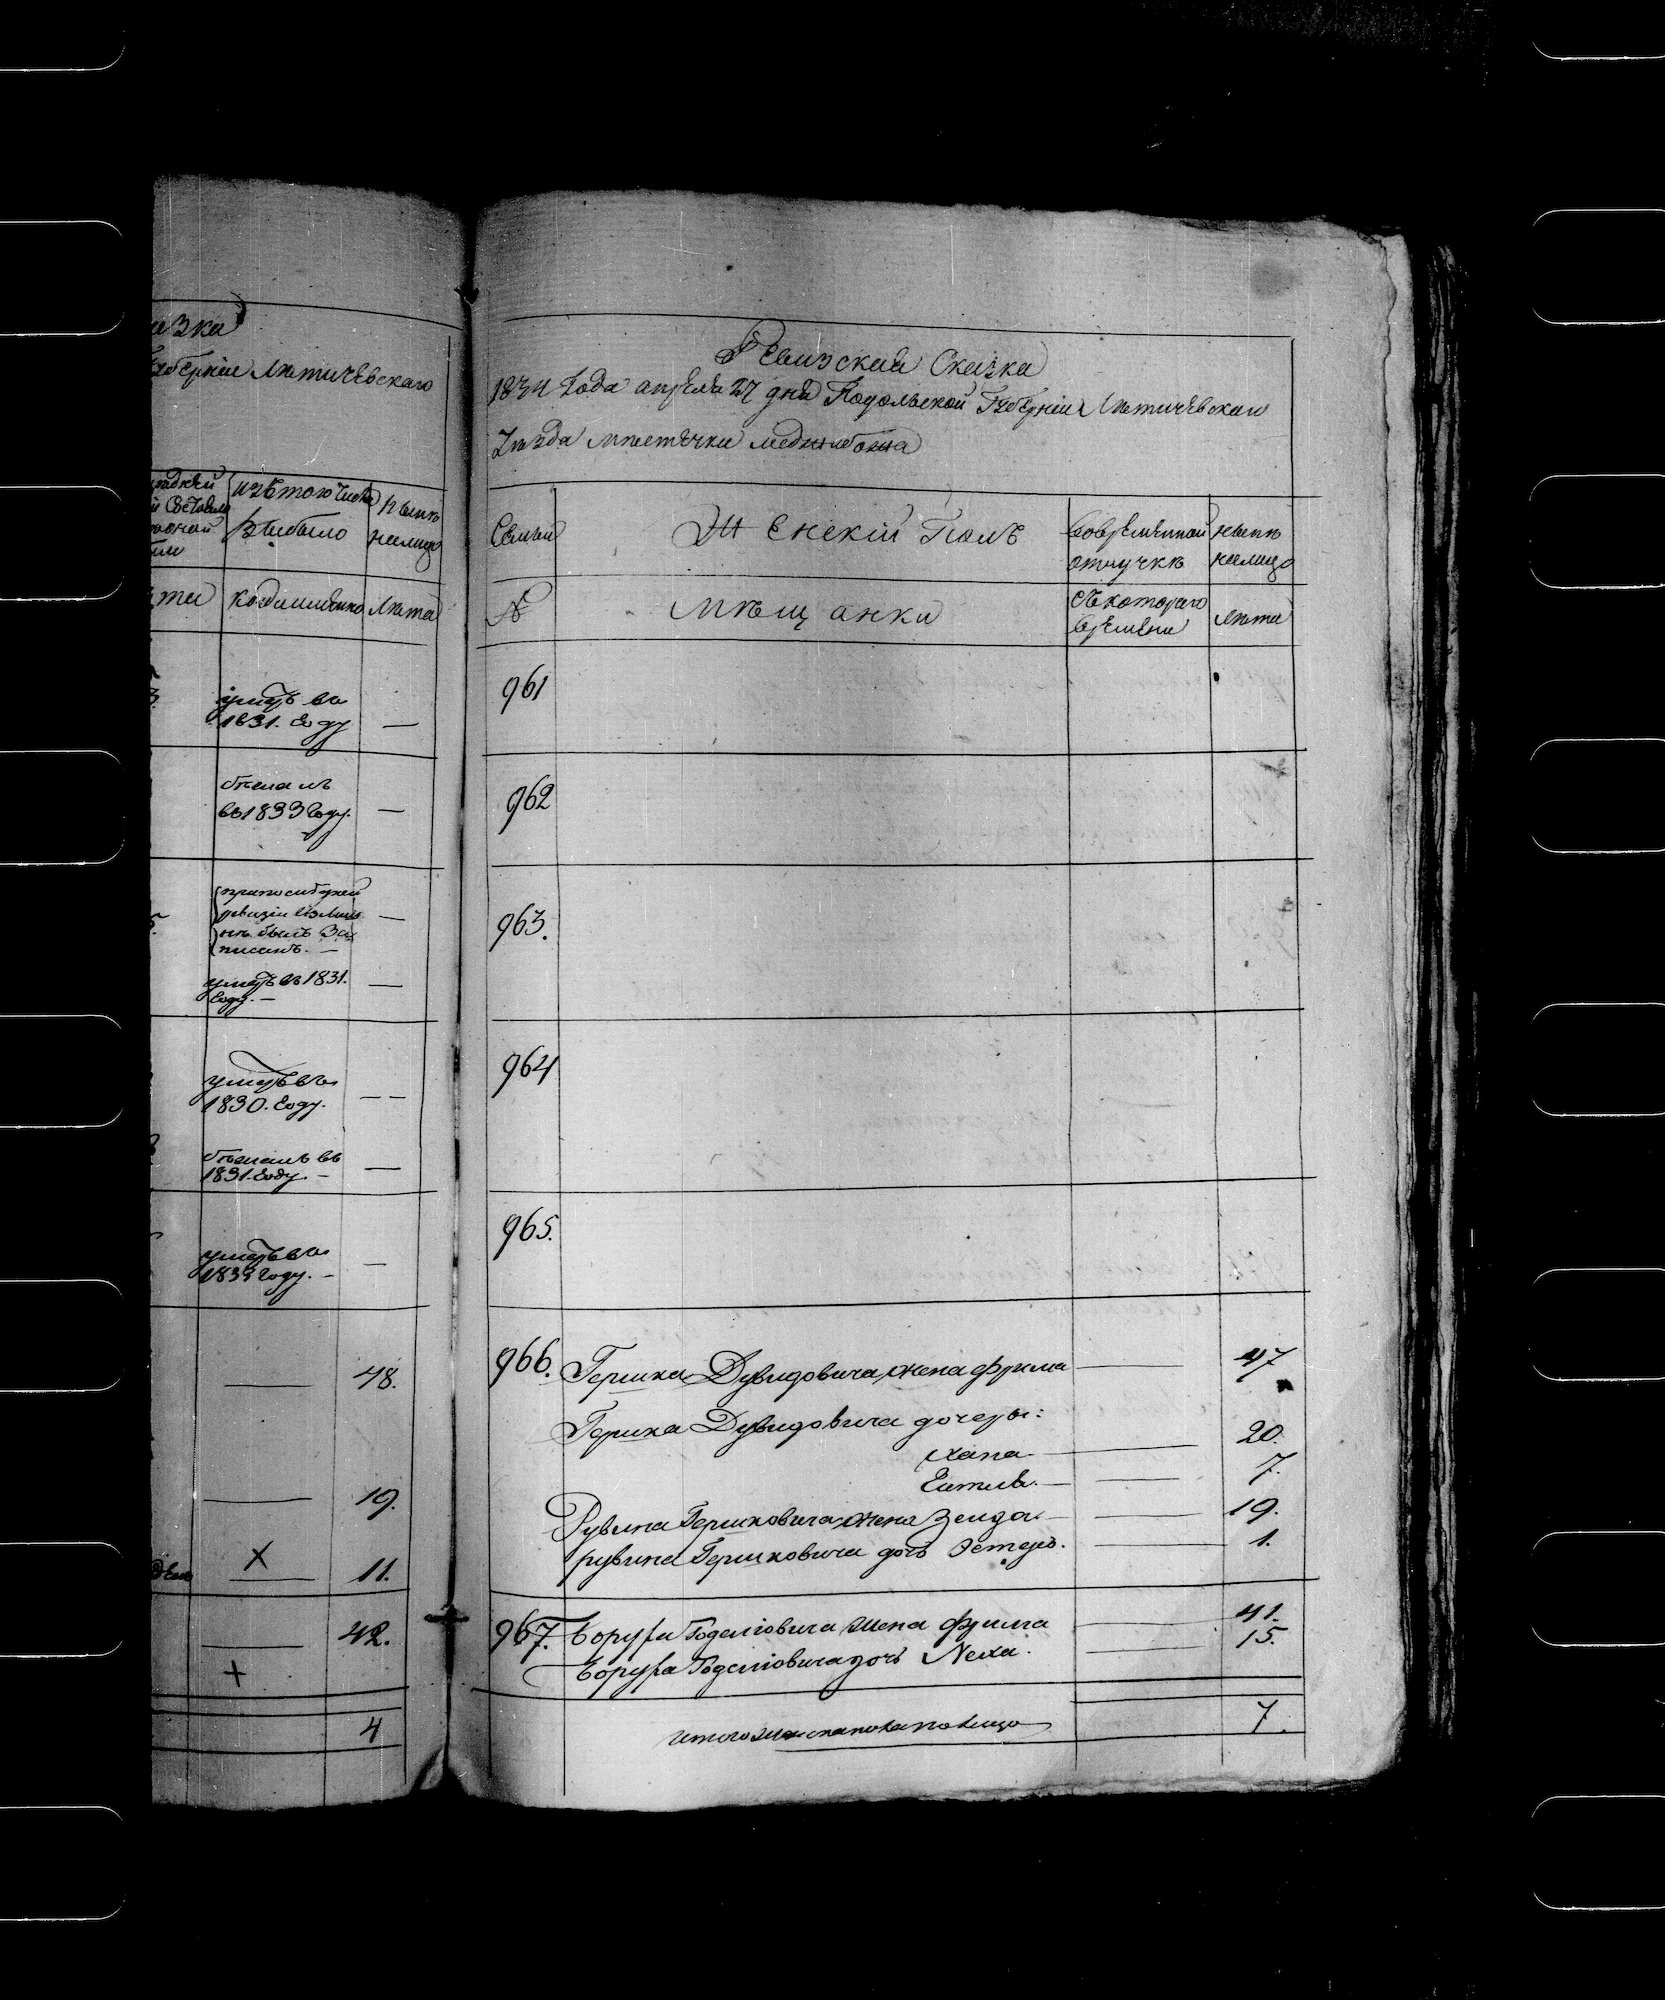 азка
Губерніи Летичевскаго
изътого числа
Выбыло
Ныне
налицо
когда имянно
Лета
умеръ въ
1831. Году
бежалъ
въ 1833 Году.
—
ревизіи
не былъ За
писанъ. —
умеръ въ 1831.
Году. —
умеръ въ
1830. Году.
бежалъ въ
1831. Году. —
умеръ въ
1833 Году. —
48.
19.
X
11.
42.
+
4
Ревизская Сказка
1834 Года апреля 27 дня Подольской Губерніи Летичевскаго
Уезда местечка Меджибожа
Семьи
Женскій Полъ
Вовременной отлучке
ныне налицо
№
Мѣщанки
Съкотораго времени
Лета
961
962
963.
964
965.
966. Гершка Дувидовича жена Фрима — 47
Гершка Дувидовича дочеры:
Хана — 20.
Ейтля. — 7.
Рувина Гершковича жена Зенда — 19.
рувина Гершковича дочь Эстеръ. — 1.
967. Боруха Годелiовича жена Фрима — 41.
Боруха Годелiовича дочь Неха. — 15.
Итого женска пола на лицо 7.